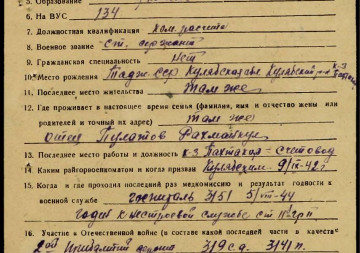 5. Образование
6. На ВУС 134
7. Должностная квалификация ком. расчета
8. Военное звание ст. сержант
9. Гражданская специальность нет
10. Место рождения Тадж. ССР Кулябская обл. Кулябский р-н к-з
11. Последнее место жительства там же
12. Где проживает в настоящее время семья (фамилия, имя и отчество жены или
родителей и точный их адрес) там же
отец Пулатов Рахманкул
13. Последнее место работы и должность к-з Пахтакал - счетовод
14. Каким райгорвоенкоматом и когда призван Кулябским 9/III-42 г
15. Когда и где проходил последний раз медкомиссию и результат годности к
военной службе госпиталь 3151 5/VIII-44
годен к нестроевой службе ст
16. Участие в Отечественной войне (в составе какой последней части в качестве
2ой Прибалтий 319 с.д. 3141 п.